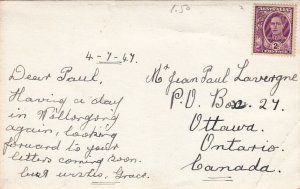 1.50
AUSTRALIA
4-7-47.
Dear Paul.
Having a day
in Wollongong
again, looking
forward to your
letters coming soon.
best wishes, Grace.
Mr Jean Paul Lavergne
P.O. Box 27.
Ottawa.
Ontario.
Canada.